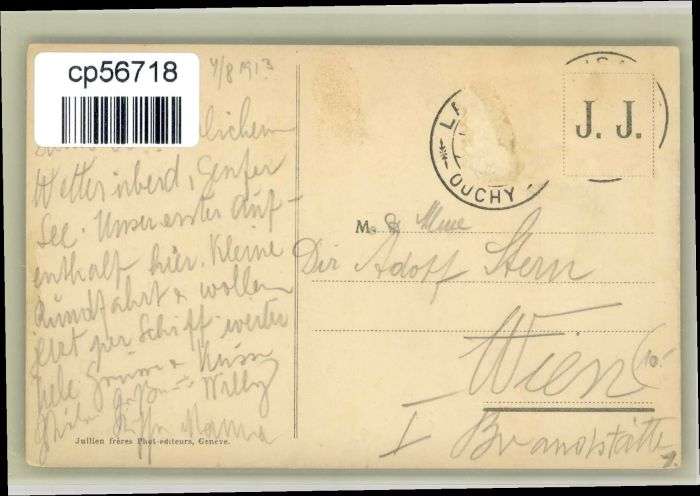 cp56718
4/8 1913
lichem
Wetter überd. Genfer
See. Unser erster Auf-
enthalt hier. Kleine
Rundfahrt & wollen
jetzt per Schiff weiter
Viele Grüsse & Küsse
Willy
Jullien frères Phot-éditeurs, Genève.
OUCHY
J. J.
M. & Mme
Dir Adolf Stern
Wien
I Brandstätte